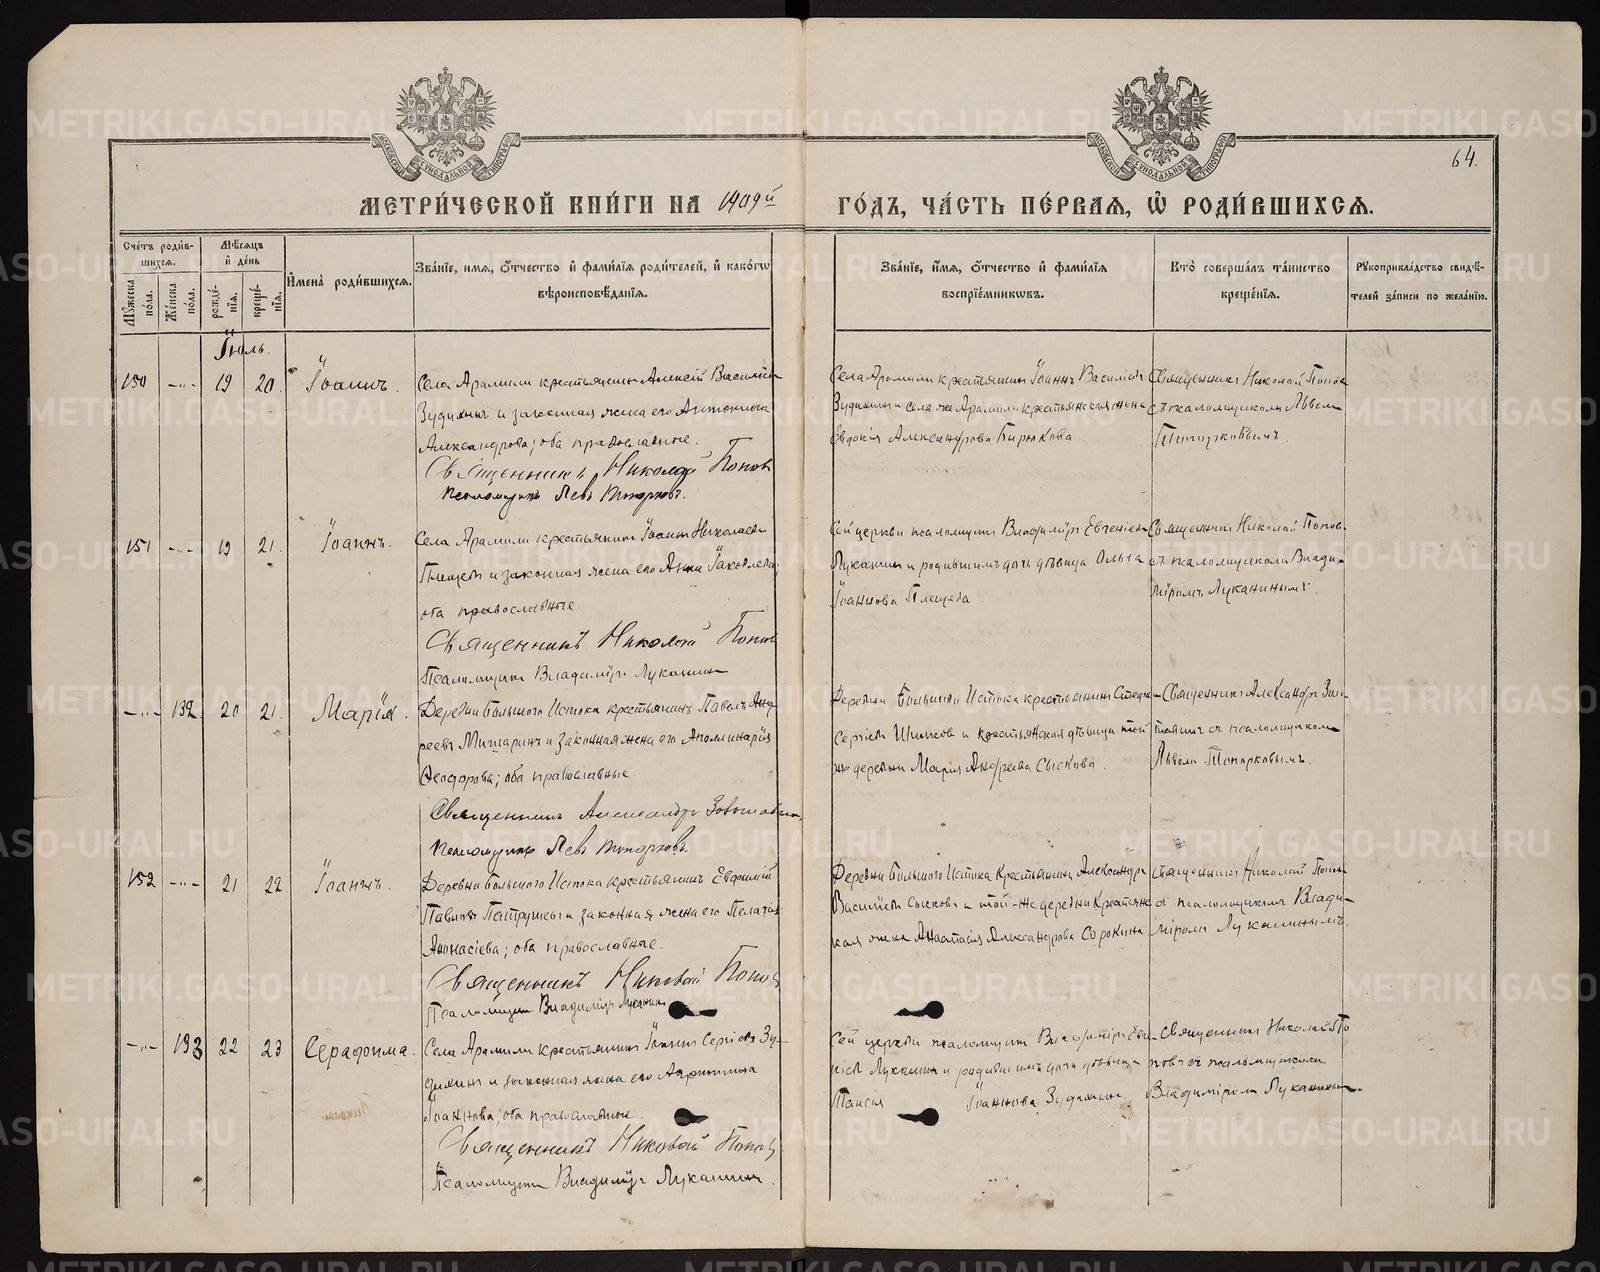 64.
МЕТРИ́ЧЕСКОЙ КНИ́ГИ НА 1909й ГО́ДЪ, ЧА́СТЬ ПЕ́РВАЯ, Ѽ РОДИ́ВШИХСЯ.
Сче́тъ роди́вшихся.
Мꙋ́жеска по́ла.
Же́нска по́ла.
Мѣ́сяцъ и де́нь
рожде́нїя.
креще́нїя.
Имена̀ роди́вшихся.
Зва́нїе, и́мя, о́тчество и фами́лїя роди́телей, и како́гѡ
вѣроисповѣ́данїя.
Зва́нїе, и́мя, о́тчество и фами́лїя
воспрїе́мникѡвъ.
Кто̀ соверша́лъ та́инство
креще́нїя.
Рꙋкоприкла́дство свидѣ́-
телей за́писи по жела́нїю.
Іюль.
150 -„- 19 20 Іоаннъ.
Села Арамили крестьянинъ Алексій Василіевъ
Зудихинъ и законная жена его Антонина
Александрова; оба православные.
Священникъ Николай Поповъ
Псаломщикъ Левъ Топорковъ.
Села Арамили крестьянинъ Іоаннъ Василіевъ
Зудихинъ и села же Арамили крестьянская жена
Евдокія Александрова Бирюкова.
Священникъ Николай Поповъ
съ псаломщикомъ Львомъ
Топорковымъ.
151 -„- 19 21. Іоаннъ.
Села Арамили крестьянинъ Іоаннъ Николаевъ
Плещевъ и законная жена его Анна Іаковлева;
оба православные.
Священникъ Николай Поповъ
Псаломщикъ Владиміръ Луканинъ
Сей церкви псаломщикъ Владиміръ Евгеніевъ
Луканинъ и родившимъ дочь дѣвица Ольга
Іоаннова Плещева.
Священникъ Николай Поповъ
съ псаломщикомъ Влади-
міромъ Луканинымъ.
-„- 132. 20 21. Марія.
Деревни Большого Истока крестьянинъ Павелъ Анд-
реевъ Мишаринъ и законная жена его Аполлинарія
Ѳеодорова; оба православные.
Священникъ Александръ
Псаломщикъ Левъ Топорковъ.
Деревни Большого Истока крестьянинъ Стефанъ
Сергіевъ и крестьянская дѣвица той
же деревни Марія Андреева Сыскова.
Священникъ Александръ
съ псаломщикомъ
Львомъ Топорковымъ.
152 -„- 21 22 Іоаннъ.
Деревни Большого Истока крестьянинъ Евфимій
Павловъ Патрушевъ и законная жена его Пелагія
Аѳанасіева; оба православные.
Священникъ Николай Поповъ
Псаломщикъ Владиміръ Луканинъ
Деревни Большого Истока крестьянинъ Александръ
Василіевъ Сысковъ и той-же деревни крестьянс-
кая жена Анастасія Александрова Сорокина.
Священникъ Николай Поповъ
съ псаломщикомъ Влади-
міромъ Луканинымъ.
-„- 133 22 23 Серафима.
Села Арамили крестьянинъ Іоаннъ Сергіевъ Зу-
дихинъ и законная жена его Агриппина
Іоаннова; оба православные.
Священникъ Николай Поповъ
Псаломщикъ Владиміръ Луканинъ.
Сей церкви псаломщикъ Владиміръ Евге-
ніевъ Луканинъ и родившимъ дочь дѣвица
Таисія Іоаннова Зудихина.
Священникъ Николай По-
повъ съ псаломщикомъ
Владиміромъ Луканинымъ.
METRIKI.GASO-URAL.RU